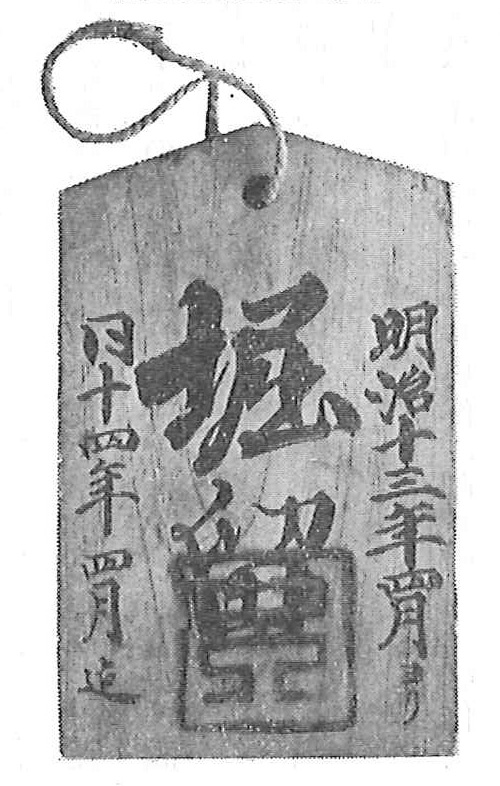 明治十三年四月より
堀
同十四年四月迄